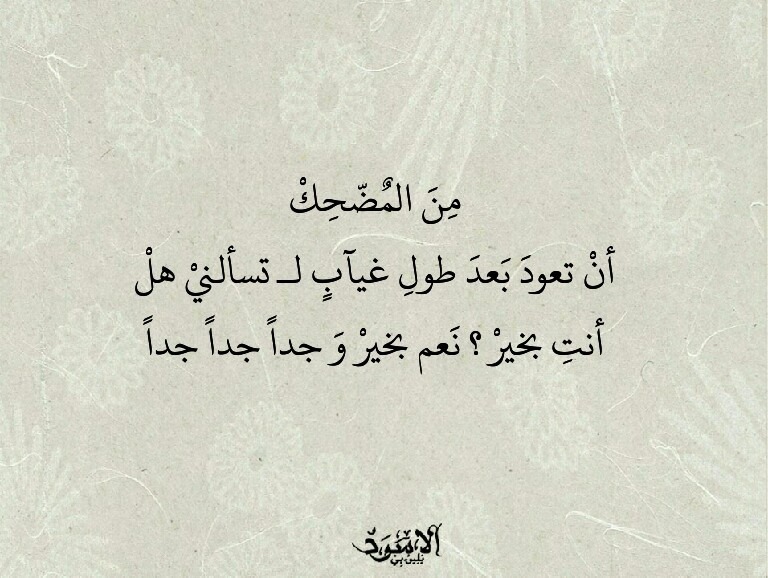 مِنَ المٌضّحِكْ
أنْ تعودَ بَعدَ طولِ غيآبٍ لــ تسألنيْ هلْ
أنتِ بخيرْ ؟ نَعم بخيرْ وَ جداً جداً جداً